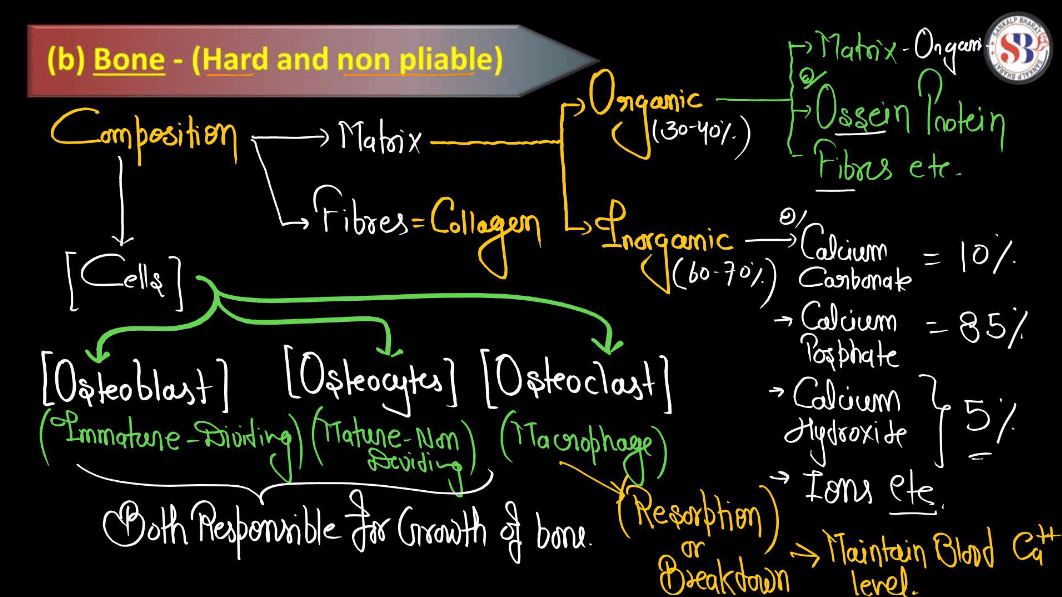 (b) Bone - (Hard and non pliable)
SANKALP BHARAT
SB
SANKALP BHARAT
Composition
Matrix
Fibres = Collagen
Organic
(30-40%)
Matrix - Organi
Ossein Protein
Fibres etc.
Inorganic
(60-70%)
Calcium
Carbonate = 10%
Calcium
Posphate = 85%
Calcium
Hydroxide
5%
Ions etc.
[Cells]
[Osteoblast] [Osteocytes] [Osteoclast]
(Immature-Dividing) (Mature-Non
Deviding)
(Macrophage)
Both Responsible for Growth of bone.
(Resorption)
or
Breakdown
Maintain Blood Ca++
level.